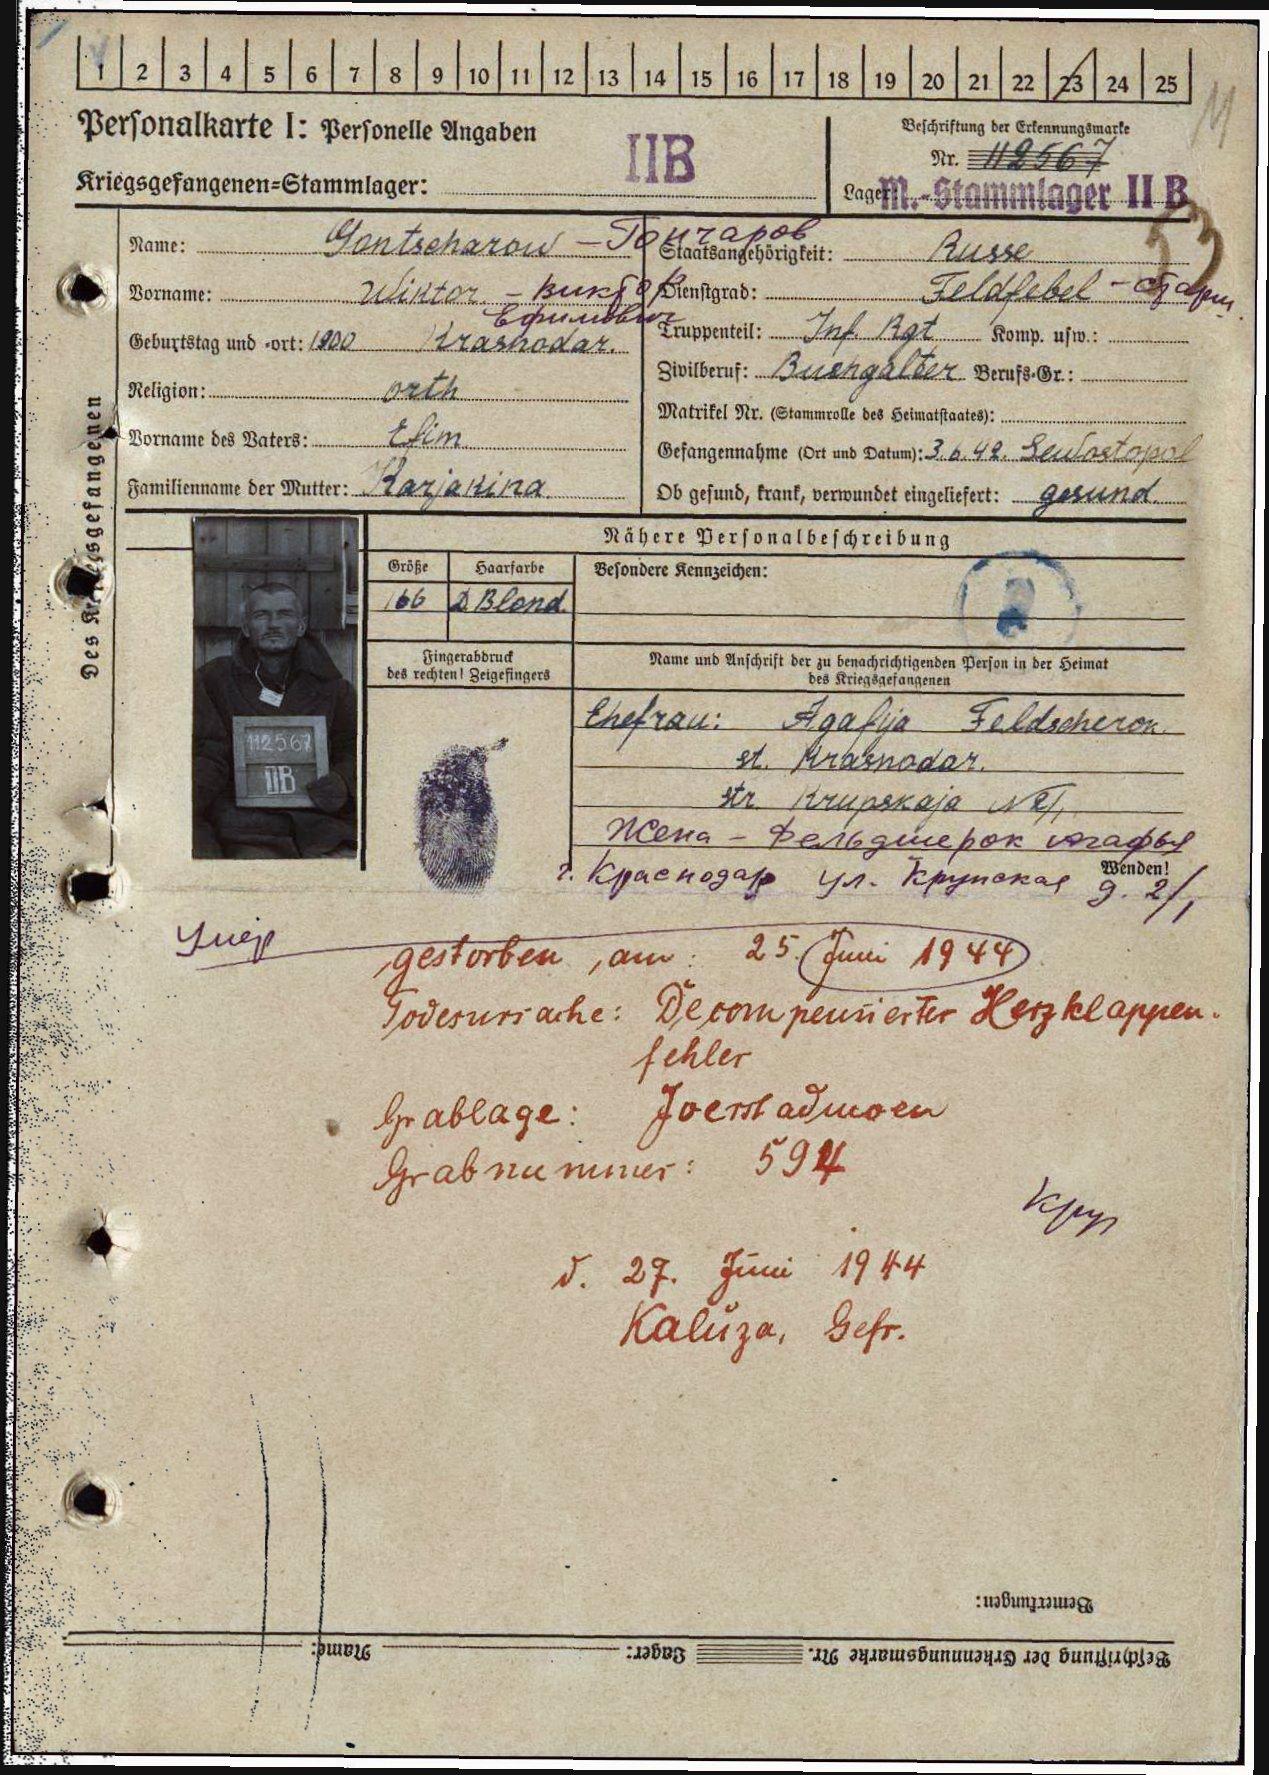 1 2 3 4 5 6 7 8 9 10 11 12 13 14 15 16 17 18 19 20 21 22 23 24 25
Personalkarte I: Personelle Angaben
IIB
Kriegsgefangenen=Stammlager:
Beschriftung der Erkennungsmarke
Nr. 112567
Lager: M.-Stammlager II B
Des Kriegsgefangenen
Name: Gontscharow – Гончаров
Vorname: Wiktor – Виктор
Ефимович
Geburtstag und -ort: 1900 Krasnodar.
Religion: orth
Vorname des Vaters: Efim
Familienname der Mutter: Karjakina
Staatsangehörigkeit: Russe
Dienstgrad: Feldfebel – старш.
Truppenteil: Inf. Rgt Komp. usw.:
Zivilberuf: Buchgalter Berufs-Gr.:
Matrikel Nr. (Stammrolle des Heimatstaates):
Gefangennahme (Ort und Datum): 3.6.42. Sewostopol
Ob gesund, krank, verwundet eingeliefert: gesund
Nähere Personalbeschreibung
Größe Haarfarbe Besondere Kennzeichen:
166 D. Blond.
112567
IIB
Fingerabdruck
des rechten! Zeigefingers
Name und Anschrift der zu benachrichtigenden Person in der Heimat
des Kriegsgefangenen
Ehefrau: Agafija Feldscherok.
st. Krasnodar.
str. Krupskaja № 2/1
Жена – Фельдшерок Агафья
Wenden!
г. Краснодар ул. Крупская д. 2/1
Умер
gestorben, am: 25. Juni 1944
Todesursache: Decompensierter Herzklappen-
fehler
Grablage: Joerstadmoen
Grabnummer: 594
d. 27. Juni 1944
Kaluza, Gefr.
Bemerkungen:
Beschriftung der Erkennungsmarke Nr. Lager: Name: